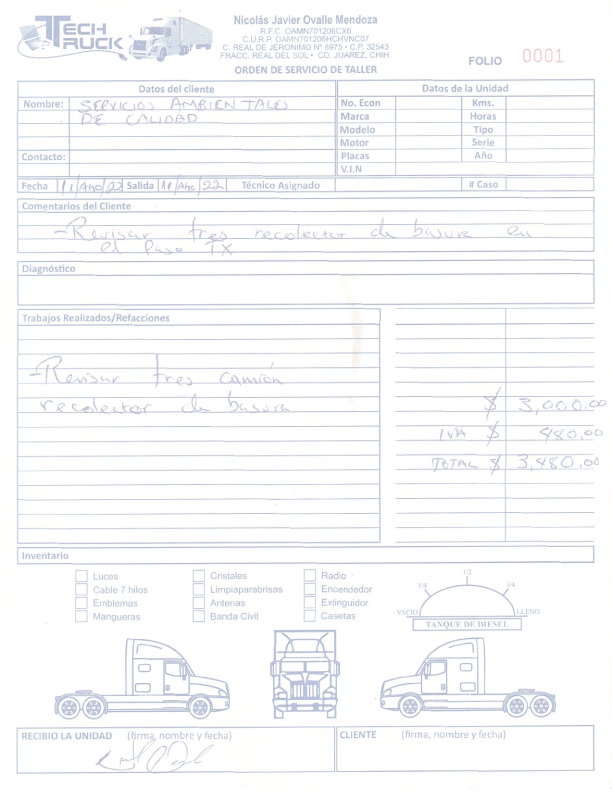 TECH TRUCK
Nicolás Javier Ovalle Mendoza
R.F.C. OAMN701206CX6
C.U.R.P. OAMN701206HCHVNC07
C. REAL DE JERONIMO N° 6975 • C.P. 32543
FRACC. REAL DEL SOL • CD. JUAREZ, CHIH.
ORDEN DE SERVICIO DE TALLER
FOLIO 0001
Datos del cliente
Datos de la Unidad
Nombre: SERVICIOS AMBIENTALES
DE CALIDAD
No. Econ Kms.
Marca Horas
Modelo Tipo
Motor Serie
Contacto:
Placas Año
V.I.N
Fecha 11/Ago/22 Salida 11/Ago/22 Técnico Asignado # Caso
Comentarios del Cliente
-Revisar tres recolector de basura en
el Paso TX
Diagnóstico
Trabajos Realizados/Refacciones
-Revisar tres camión
recolector de basura
$ 3,000.00
IVA $ 480.00
TOTAL $ 3,480.00
Inventario
Luces Cristales Radio
Cable 7 hilos Limpiaparabrisas Encendedor
Emblemas Antenas Extinguidor
Mangueras Banda Civil Casetas
1/4 1/2 3/4
VACIO LLENO
TANQUE DE DIESEL
RECIBIO LA UNIDAD (firma, nombre y fecha)
CLIENTE (firma, nombre y fecha)